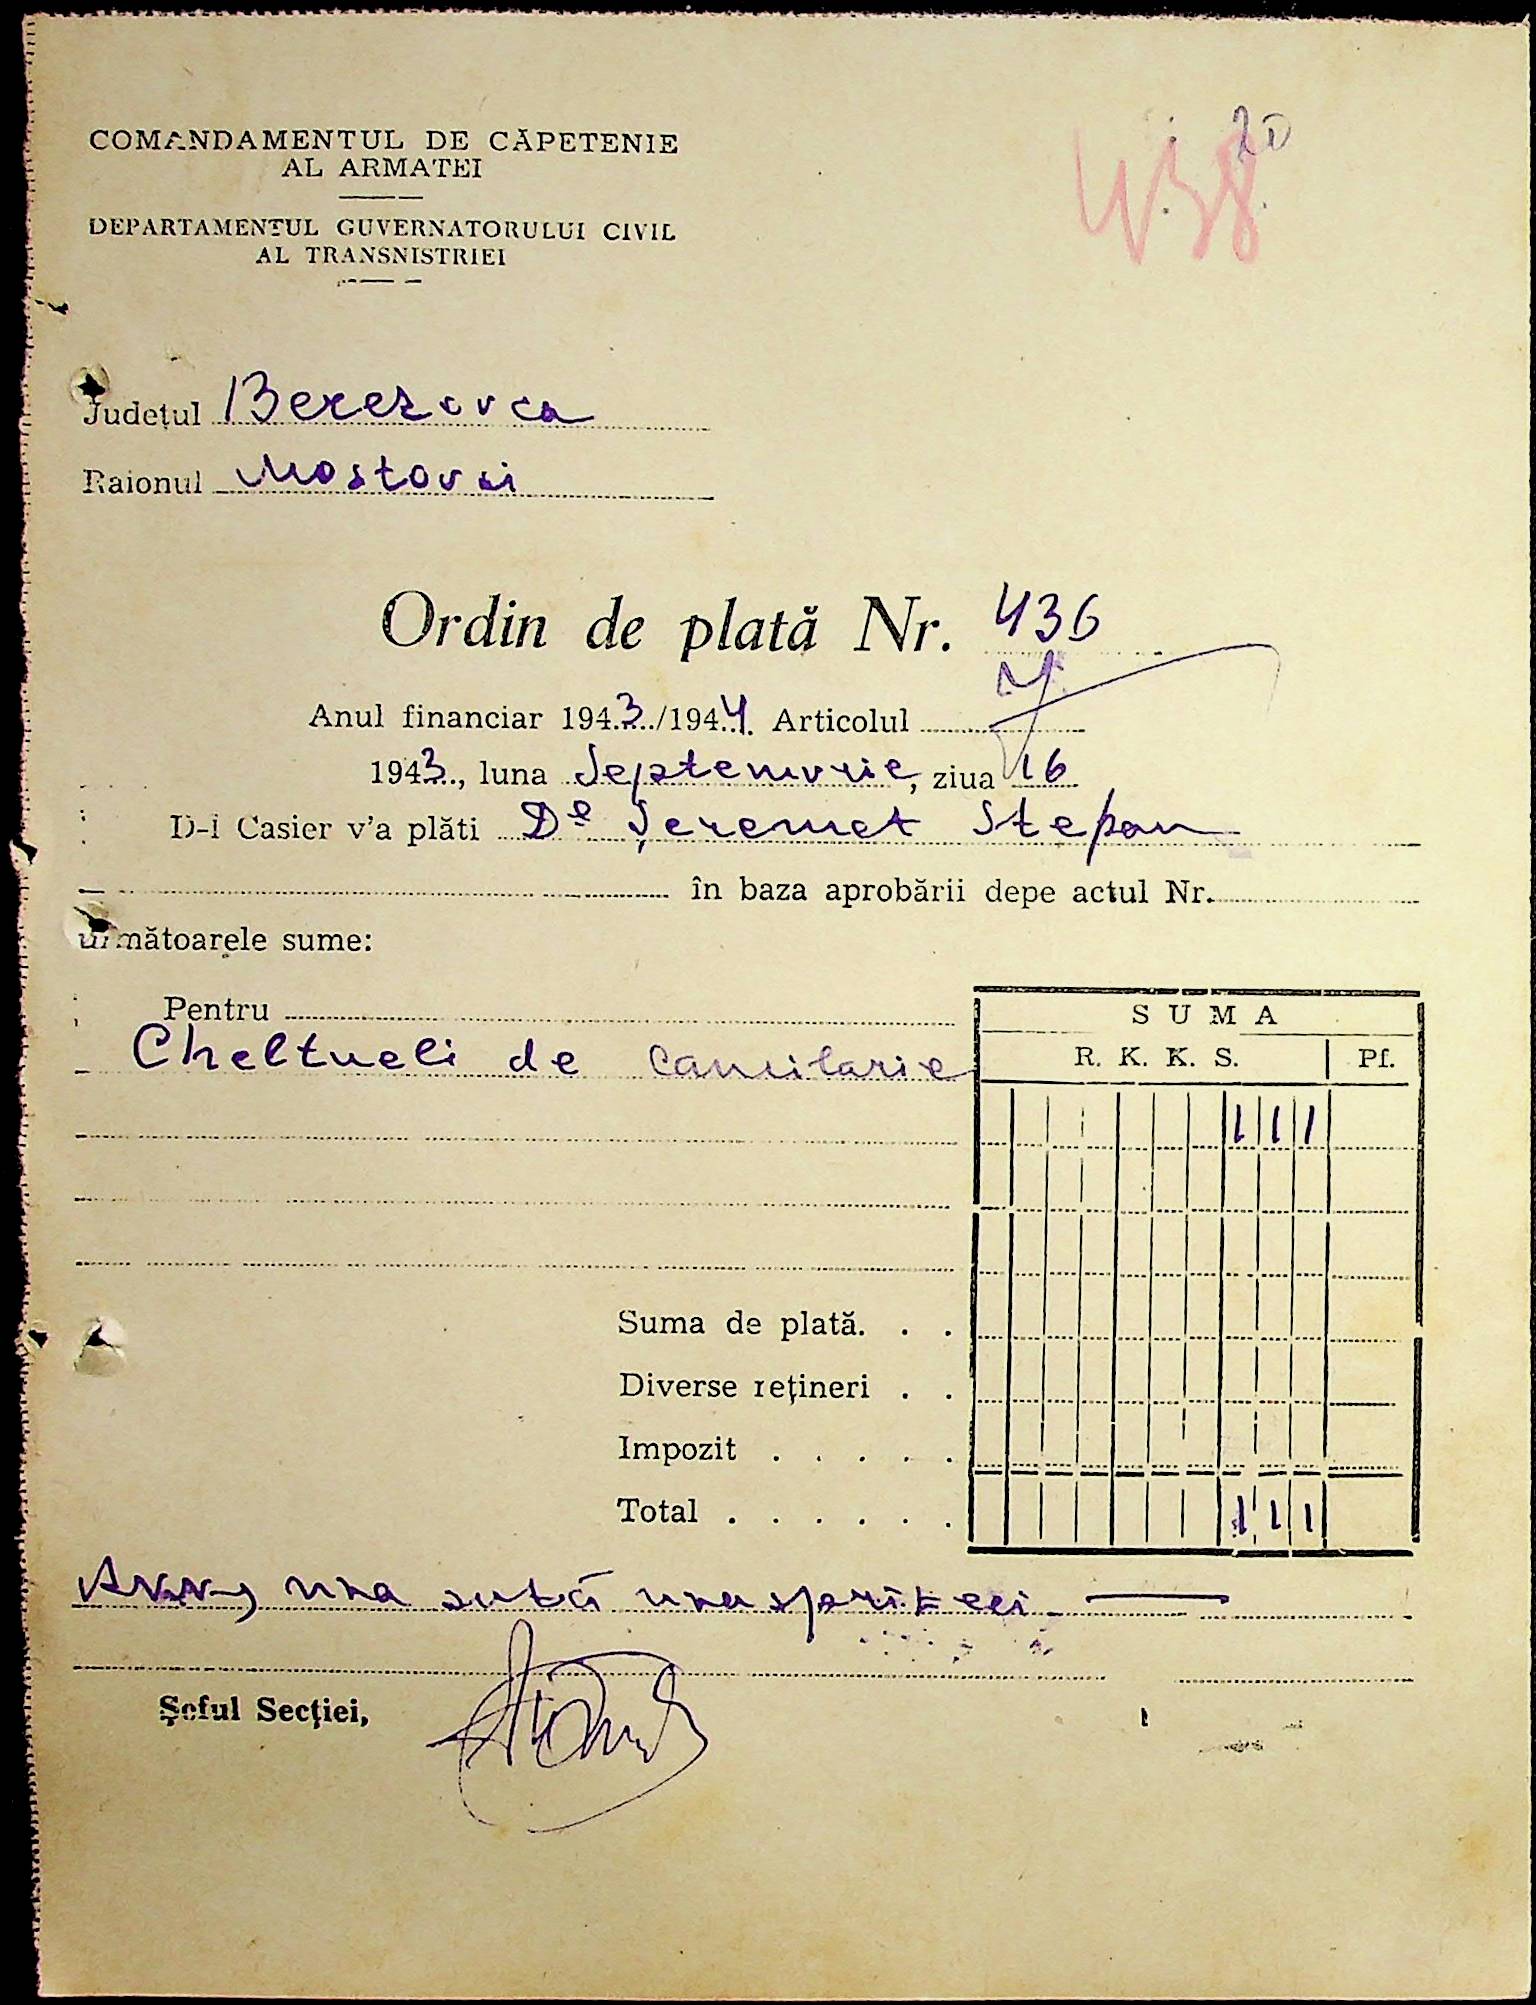 20
438
COMANDAMENTUL DE CĂPETENIE
AL ARMATEI
DEPARTAMENTUL GUVERNATORULUI CIVIL
AL TRANSNISTRIEI
Județul Berezovca
Raionul Mostovoi
Ordin de plată Nr. 436
Anul financiar 1943/1944. Articolul
1943., luna Septemvrie, ziua 16
D-l Casier v'a plăti Dl Șeremet Stepan
în baza aprobării depe actul Nr.
următoarele sume:
Pentru
SUMA
Cheltueli de cancilarie
R. K. K. S. Pf.
111
Suma de plată. . .
Diverse rețineri . .
Impozit . . . . .
Total . . . . . . 111
una sută unasprăzeci
Șeful Secției,